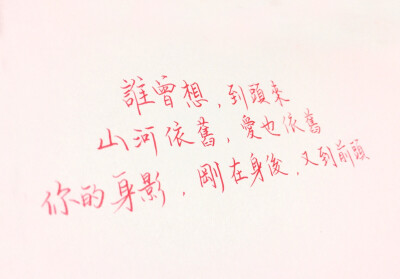 誰曾想，到頭來
山河依舊，愛也依舊
你的身影，剛在身後，又到前頭